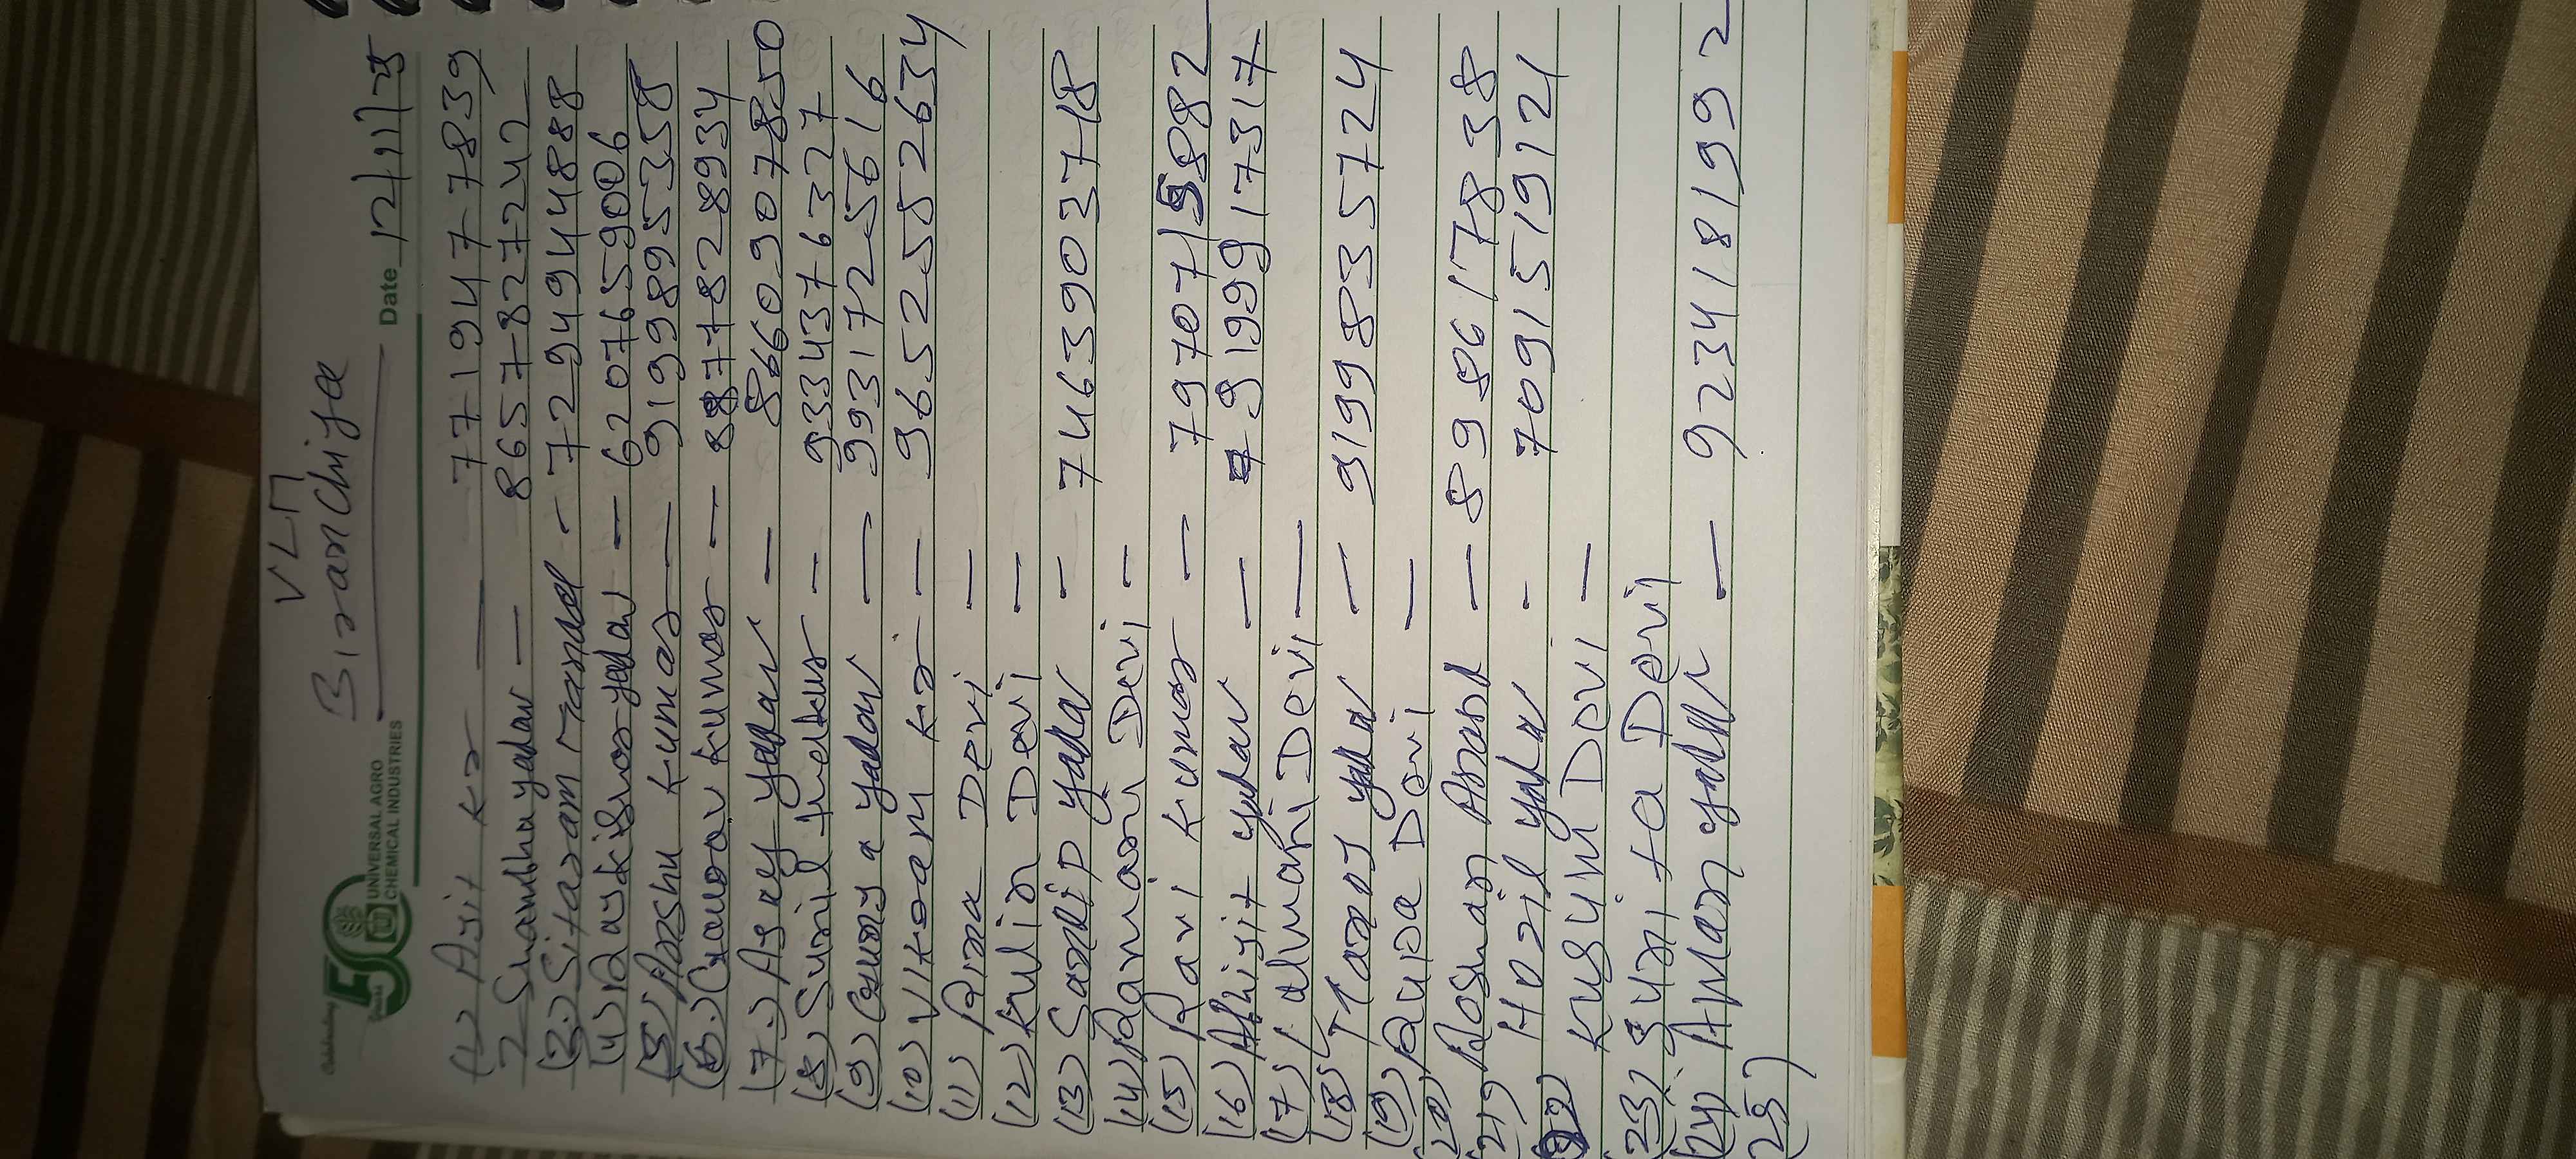 VLM
Biranchiya
Celebrating
50
UNIVERSAL AGRO
CHEMICAL INDUSTRIES
Date 12/11/25
(1) Ajit Kr — 7719477839
2 Shambhu yadav — 8657827242
(3) Sitaram Mandal - 7294944888
(4) Rajkishor yadav — 6207659006
(5) Anshu Kumar — 9199895358
(6) Gaurav Kumar — 8877828934
(7) Ajay yadav — 8660907850
(8) Sunil — 9334376327
(9) yadav — 9931725616
(10) Vikram Kr — 9652582634
(11) Rina Devi —
(12) Devi —
(13) Sandip yadav - 7463903718
(14) Devi -
(15) Ravi Kumar — 7970715882
(16) Abhijit yadav — 9199917317
(17) Devi —
(18) Manoj yadav — 9199835724
(19) Rupa Devi —
(20) Roshan Anand — 8986177838
(21) yadav - 7091519121
(22) Kusum Devi —
(23) Sunita Devi
(24) Aman yadav — 9234181992
(25)